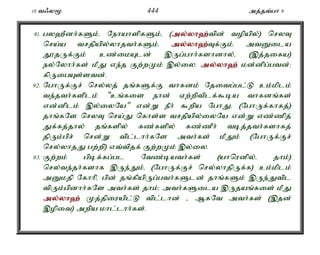 10 வஃலமூ 444 அத்தவ்பா 9
91. பலஹீனர்களும், நோயாளிகளும், (அல்லாஹ்வின் வழியில்) செலவு
செய்ய வசதியில்லாதவர்களும், அல்லாஹ்வுக்கும், அவனுடைய
தூதருக்கும் உண்மையுடன் இருப்பார்களானால், (இத்தகைய)
நல்லோர்கள் மீது எந்த குற்றமும் இல்லை. அல்லாஹ் மன்னிப்பவன்;
கிருபையுள்ளவன்.
92. போருக்குச் செல்லத் தங்களுக்கு வாகனம் தேவைப்பட்டு உம்மிடம்
வந்தவர்களிடம் "உங்களை நான் ஏற்றிவிடக்கூடிய வாகனங்கள்
என்னிடம் இல்லையே" என்று நீர் கூறிய போது, (போருக்காகத்)
தாங்களே செலவு செய்து கொள்ள வசதியில்லையே என்று எண்ணித்
துக்கத்தால் தங்களின் கண்களில் கண்ணீர் வடித்தவர்களாகத்
திரும்பிச் சென்று விட்டார்களே அவர்கள் மீதும் (போருக்குச்
செல்லாதது பற்றி) எவ்விதக் குற்றமும் இல்லை.
93. குற்றம் பிடிக்கப்பட வேண்டியவர்கள் (யாரெனில், தாம்)
செல்வந்தர்களாக இருந்தும், (போருக்குச் செல்லாதிருக்க) உம்மிடம்
அனுமதி கோரி, பின் தங்கியிருப்பவர்களுடன் தாங்களும் இருந்துவிட
விரும்பினார்களே அவர்கள் தாம்; அவர்களுடைய இருதயங்கள் மீது
அல்லாஹ் முத்திரையிட்டு விட்டான் - ஆகவே அவர்கள் (இதன்
இழிவை) அறிய மாட்டார்கள்.